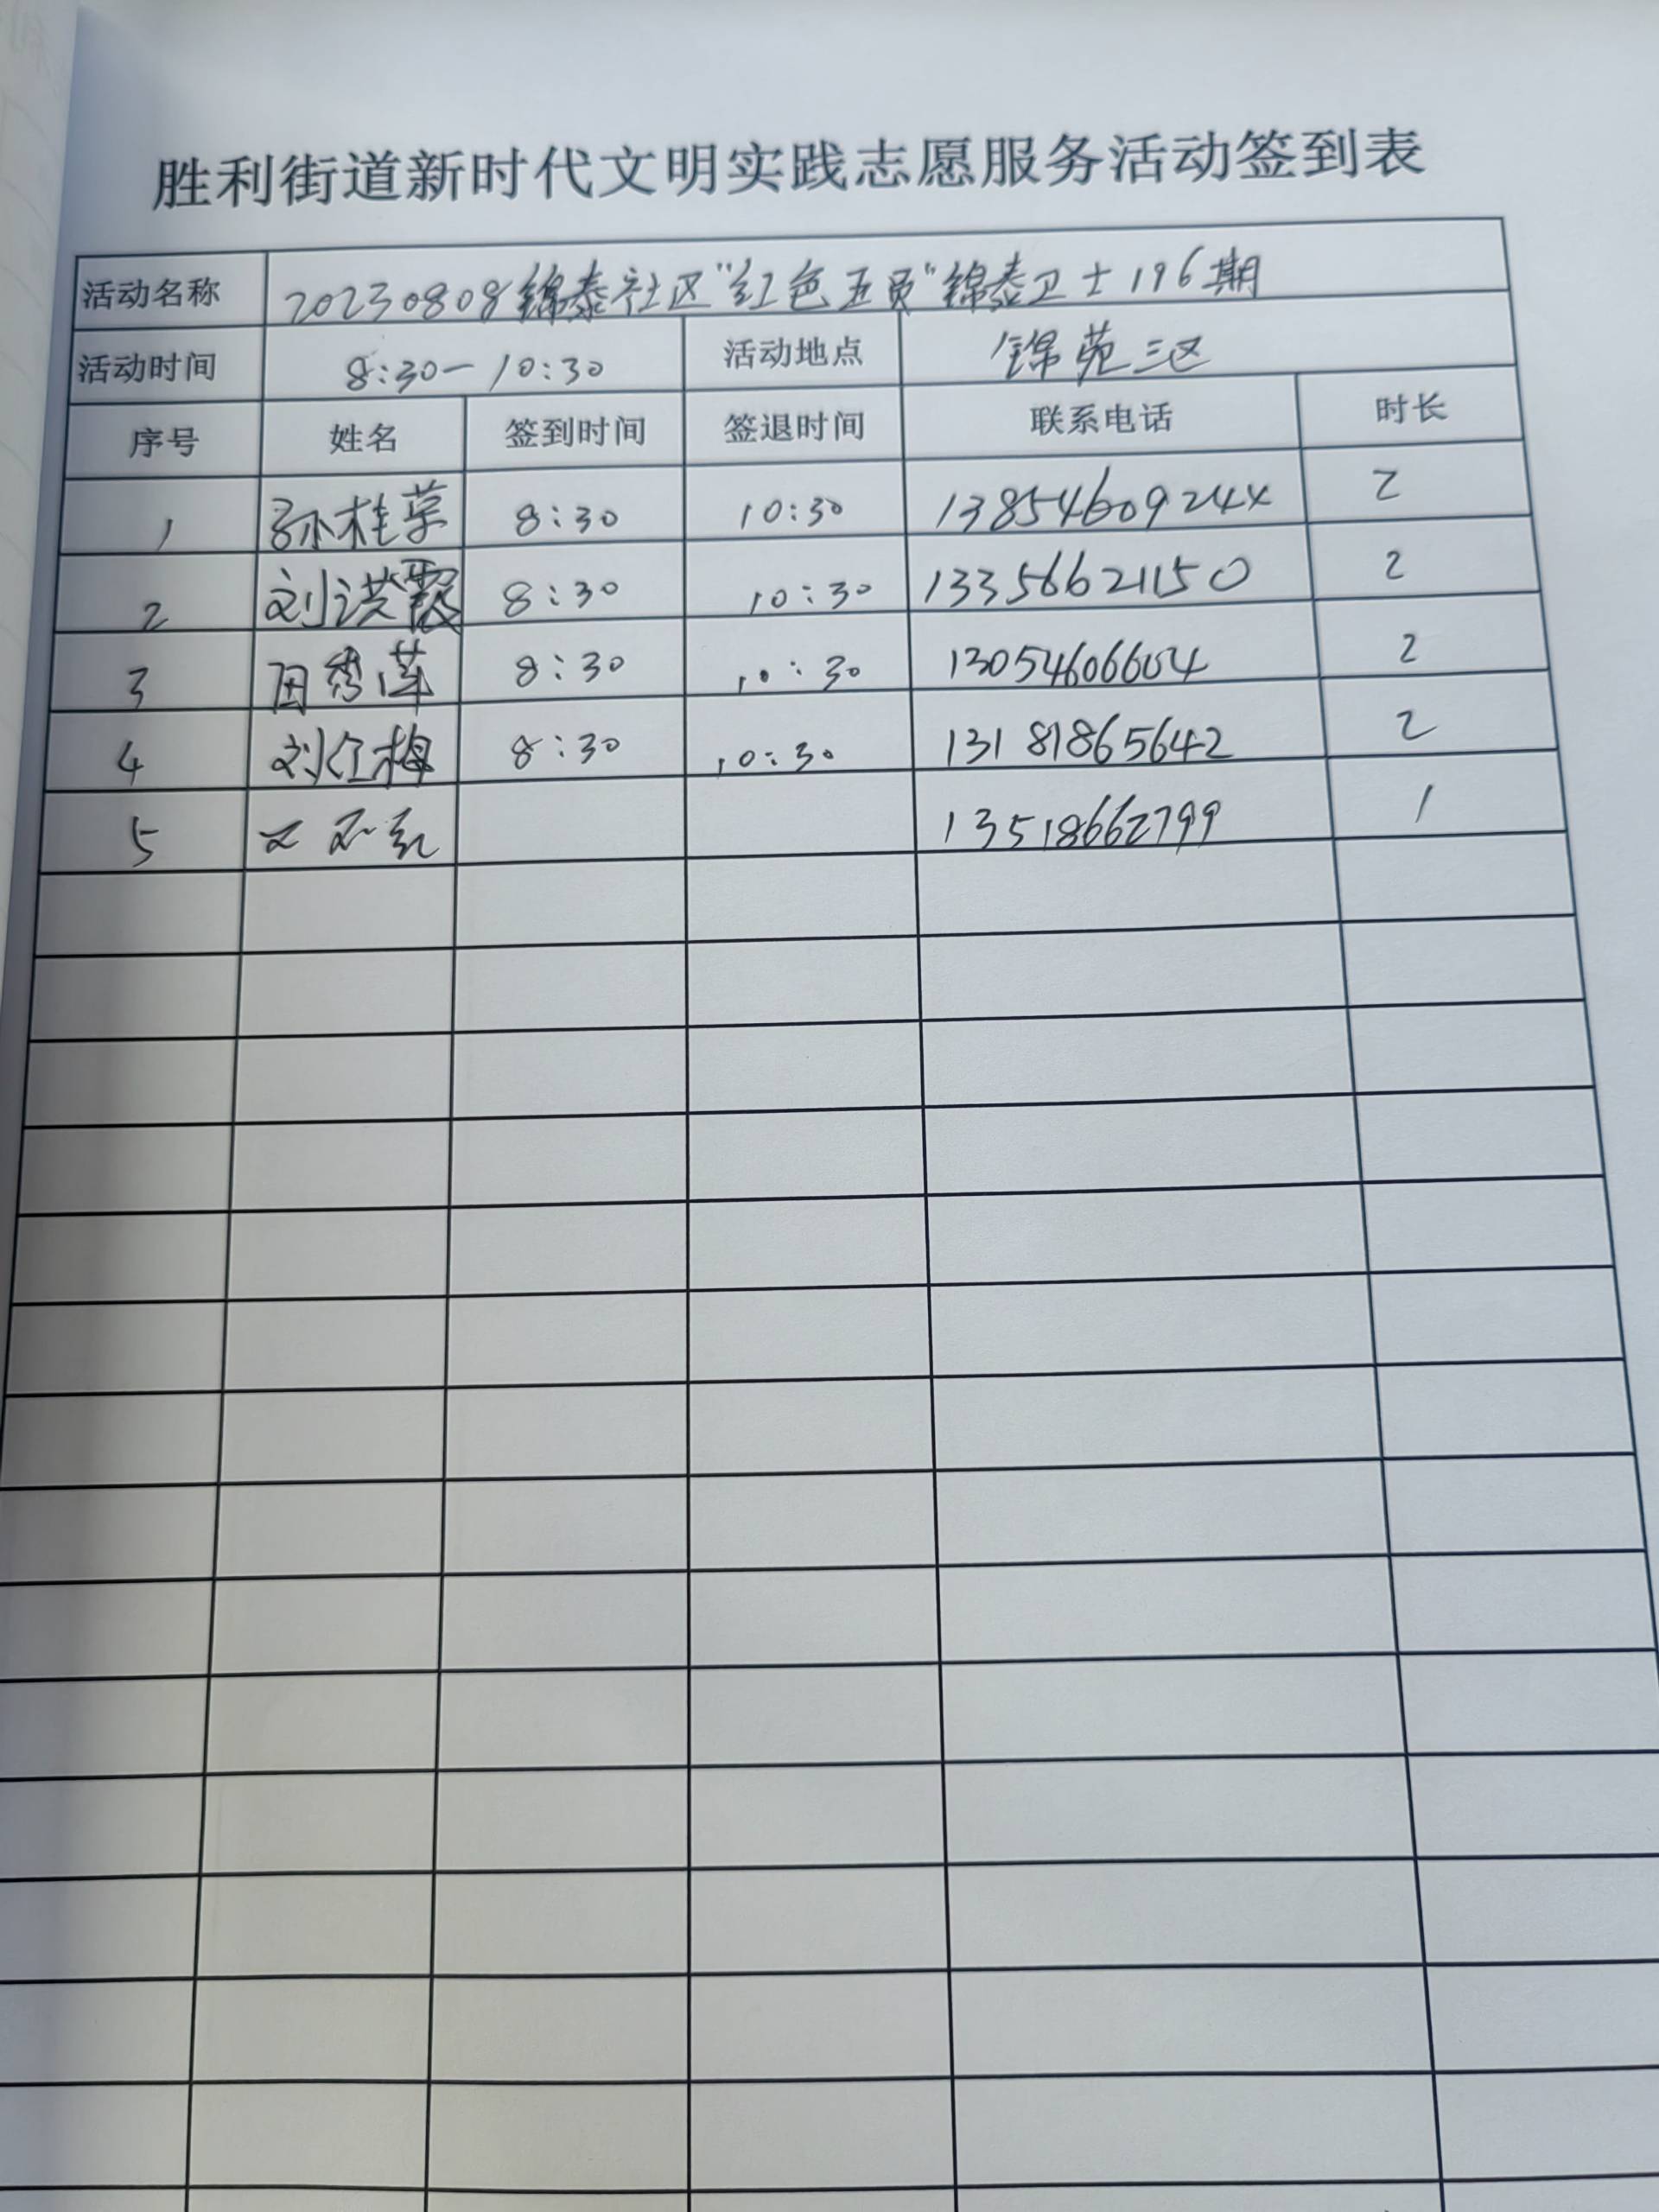 胜利街道新时代文明实践志愿服务活动签到表
活动名称 20230808锦泰社区"红色五员"锦泰卫士196期
活动时间 8:30-10:30 活动地点 锦苑三区
序号 姓名 签到时间 签退时间 联系电话 时长
1 孙桂 8:30 10:30 1385460924 2
2 刘洪霞 8:30 10:30 13356621150 2
3 田秀莲 8:30 10:30 13054606604 2
4 刘红梅 8:30 10:30 13181865642 2
5 13518662799 1